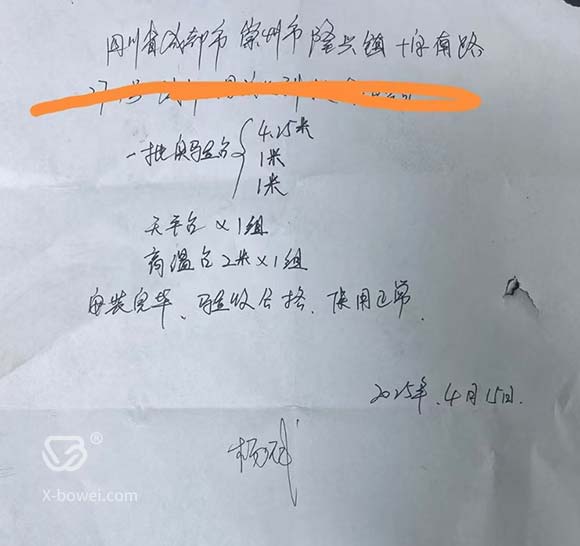 四川省成都市崇州市隆兴镇十字南路
一批实验台 4.25米
1米
1米
天平台×1组
高温台2米×1组
安装完毕、验收合格、使用正常.
2025年.4月15日.
X-bowei.com